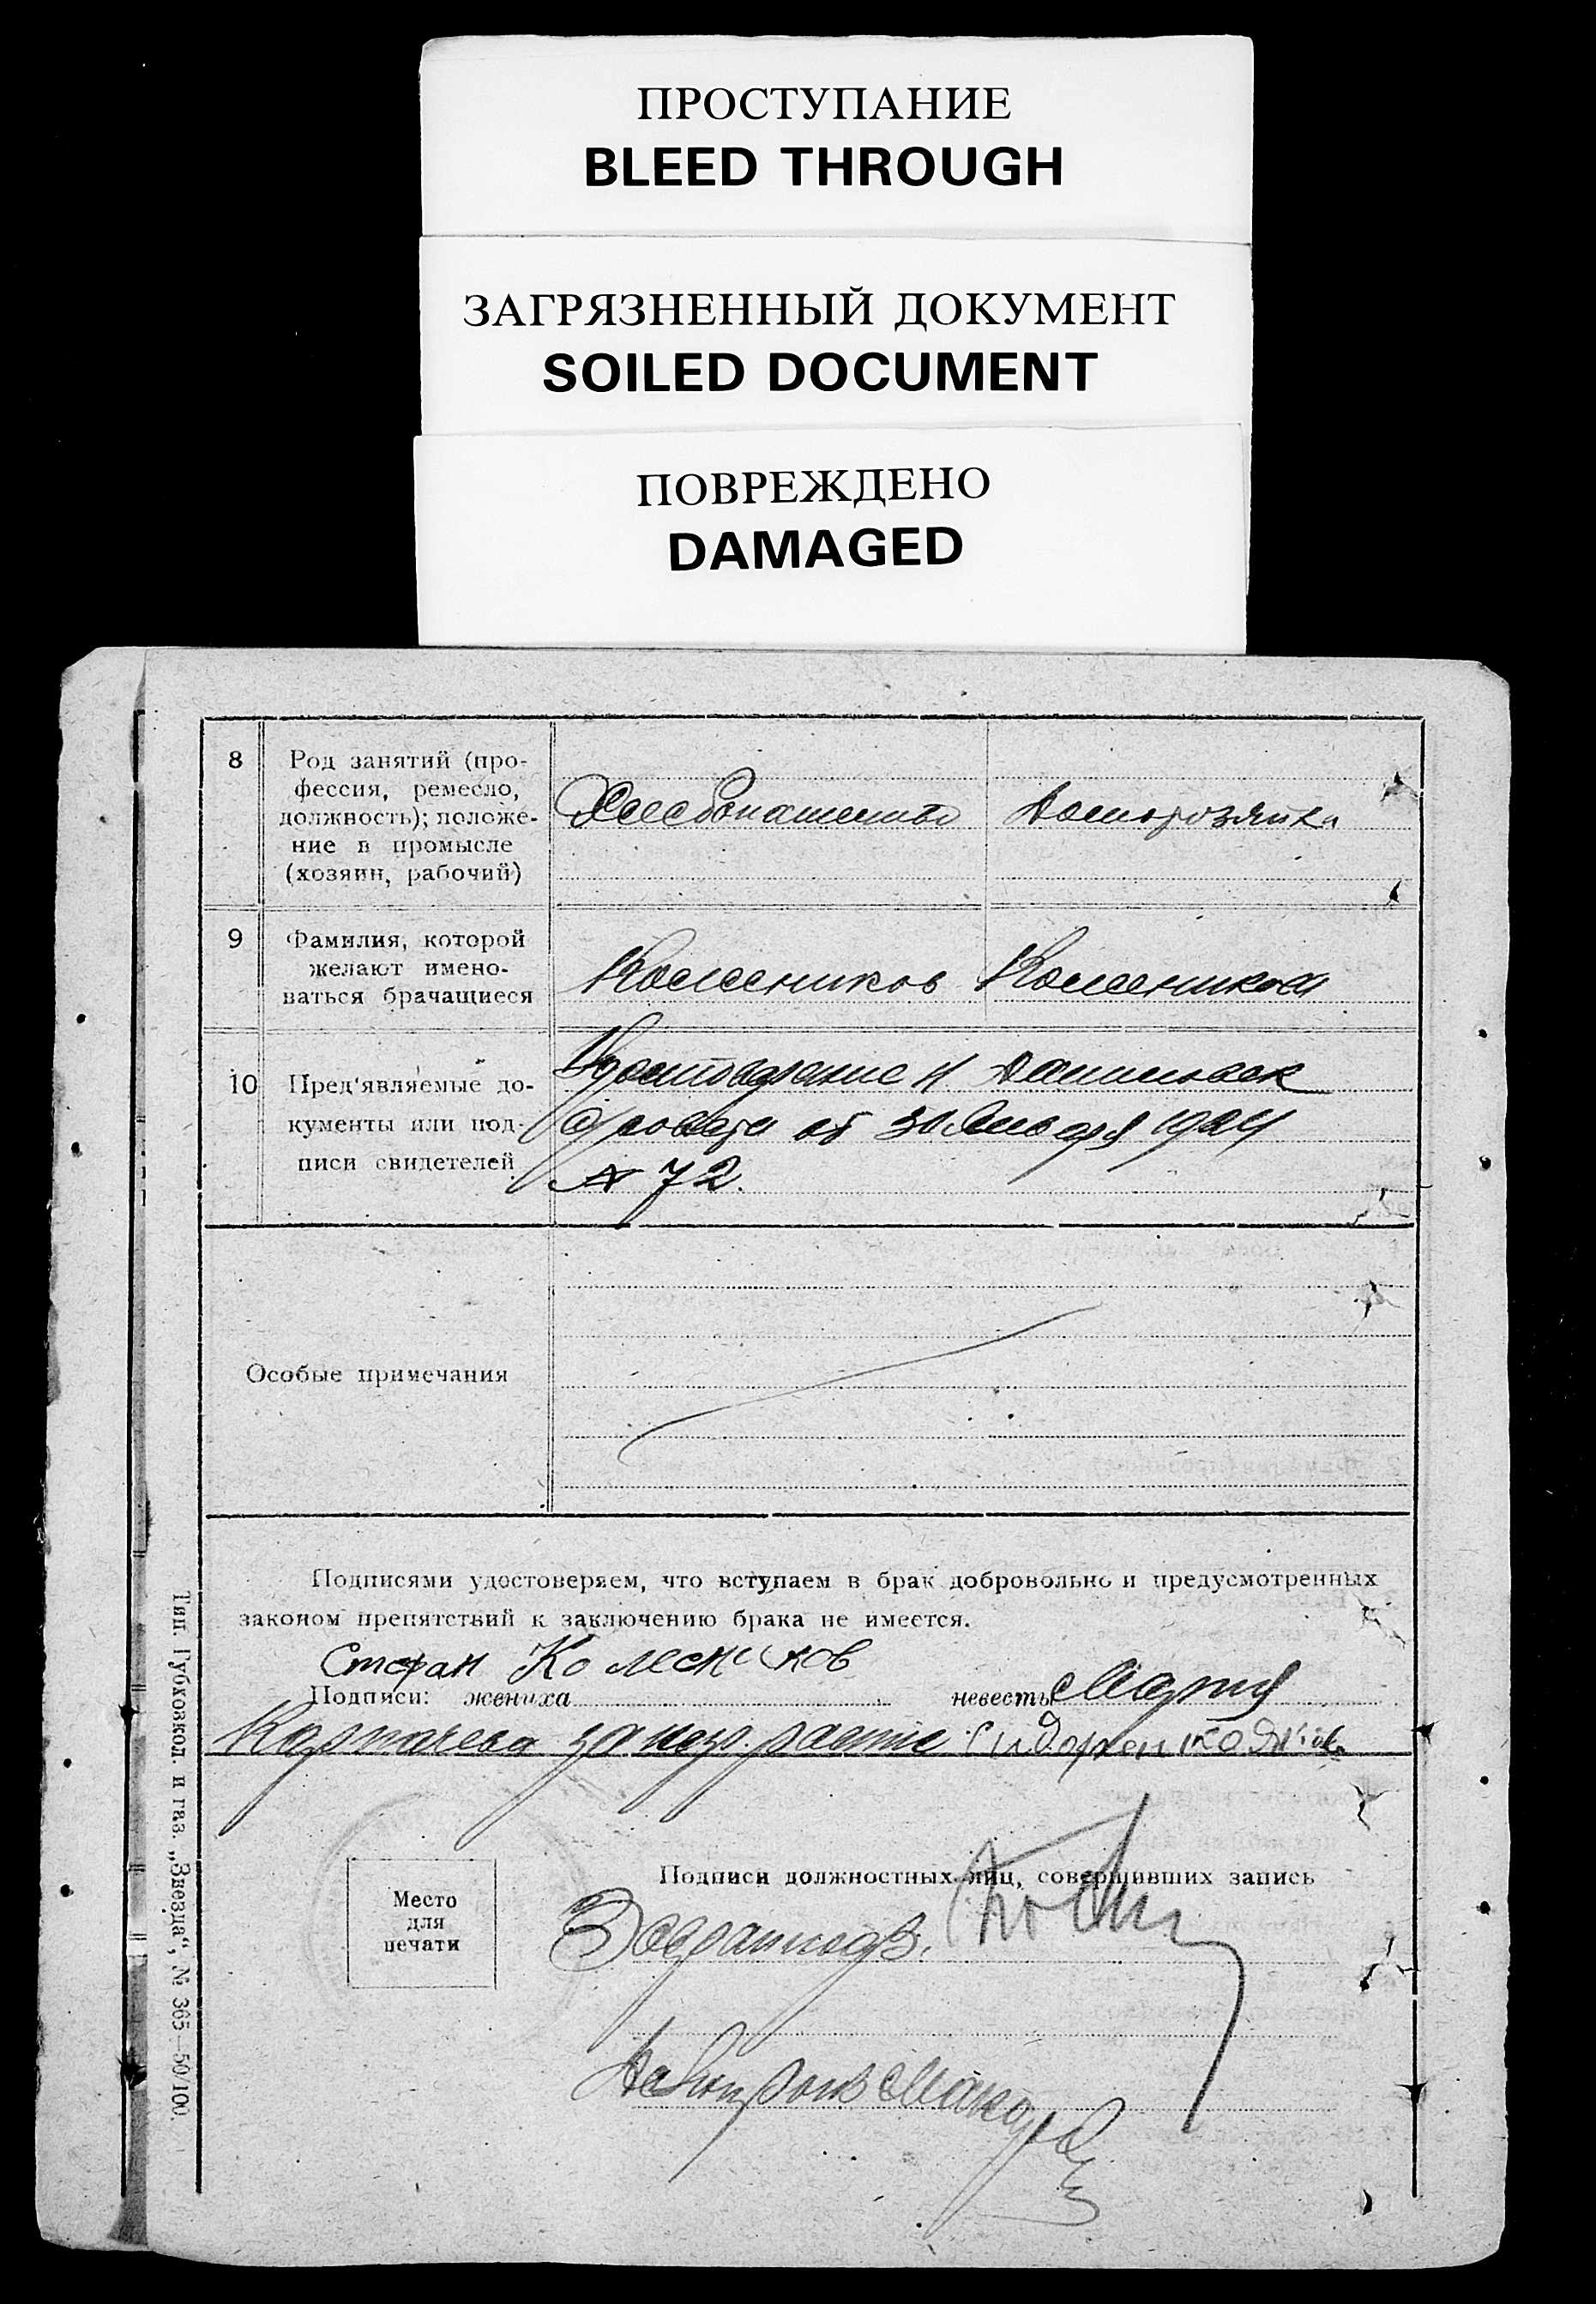 ПРОСТУПАНИЕ
BLEED THROUGH
ЗАГРЯЗНЕННЫЙ ДОКУМЕНТ
SOILED DOCUMENT
ПОВРЕЖДЕНО
DAMAGED
8
Род занятий (про-
фессия, ремесло,
должность); положе-
ние в промысле
(хозяин, рабочий)
Хлебопашество
Домохозяйка
9
Фамилия, которой
желают имено-
ваться брачащиеся
Колесников
Колесникова
10
Пред'являемые до-
кументы или под-
писи свидетелей
Удостоверение
от 30 Января 1924
№ 72.
Особые примечания
Подписями удостоверяем, что вступаем в брак добровольно и предусмотренных
законом препятствий к заключению брака не имеется.
Стефан Колесников
Подписи: жениха
невесты Мария
Карпачева за негр. расписа Сидоренко
Место
для
печати
Подписи должностных лиц, совершивших запись
Тип. Губхозкол. и газ. „Звезда“, № 365—50/100.